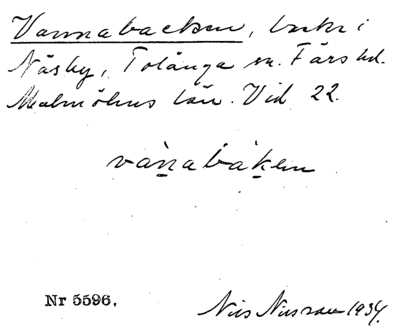 Vannabacken, backe i
Näsby, Tolånga sn. Färs hd.
Malmöhus län. Vid 22.
Nr 5596.
Nils Nilsson 1934.